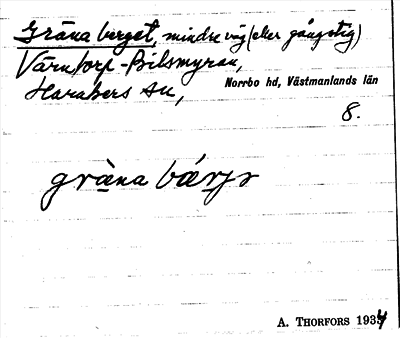 Gräna berget, mindre väg (eller gångstig)
Värntorp - Bilsmyran,
Harakers sn,
Norrbo hd, Västmanlands län
8.
gräna bærjr
A. THORFORS 1934